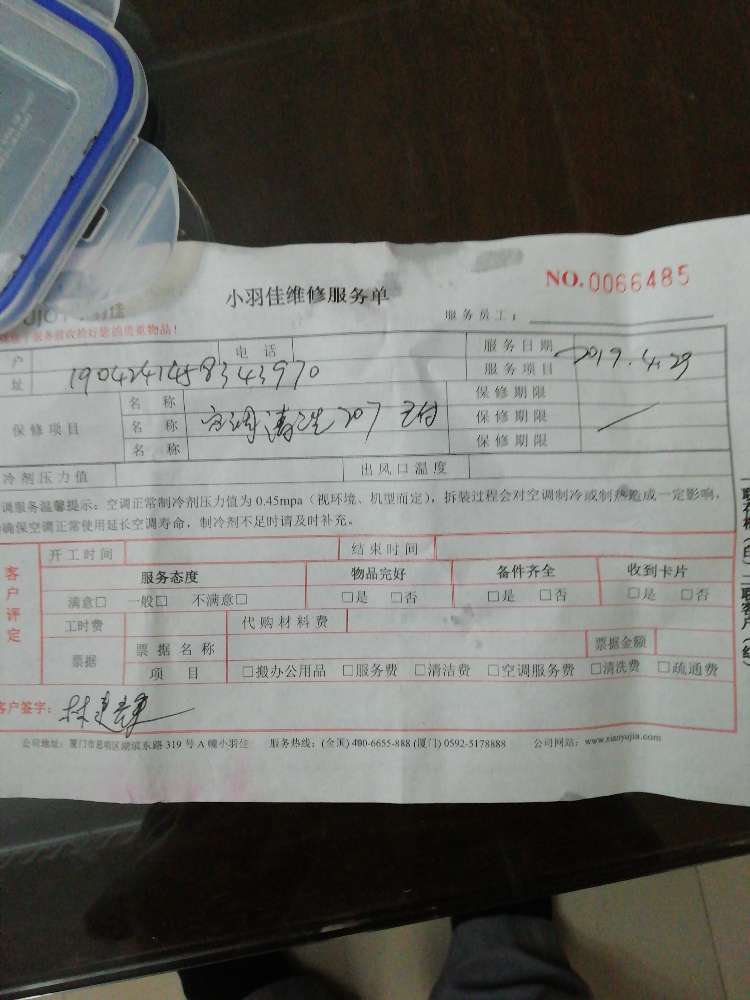 小羽佳维修服务单
NO.0066485
服务员工：
户 电话 服务日期 2019.4.29
址 1904241458343970 服务项目
保修项目 名称 空调清洗 207 已付 保修期限
名称 保修期限
名称 保修期限
冷剂压力值 出风口温度
调服务温馨提示：空调正常制冷剂压力值为 0.45mpa（视环境、机型而定），拆装过程会对空调制冷或制热造成一定影响，
确保空调正常使用延长空调寿命，制冷剂不足时请及时补充。
客户评定
开工时间 结束时间
服务态度 物品完好 备件齐全 收到卡片
满意□ 一般□ 不满意□ □是 □否 □是 □否 □是 □否
工时费 代购材料费
票据 票据名称 票据金额
项目 □搬办公用品 □服务费 □清洁费 □空调服务费 □清洗费 □疏通费
客户签字：
公司地址：厦门市思明区湖滨东路 319 号 A 幢小羽佳 服务热线：(全国) 400-6655-888 (厦门) 0592-5178888 公司网站：www.xiaoyujia.com